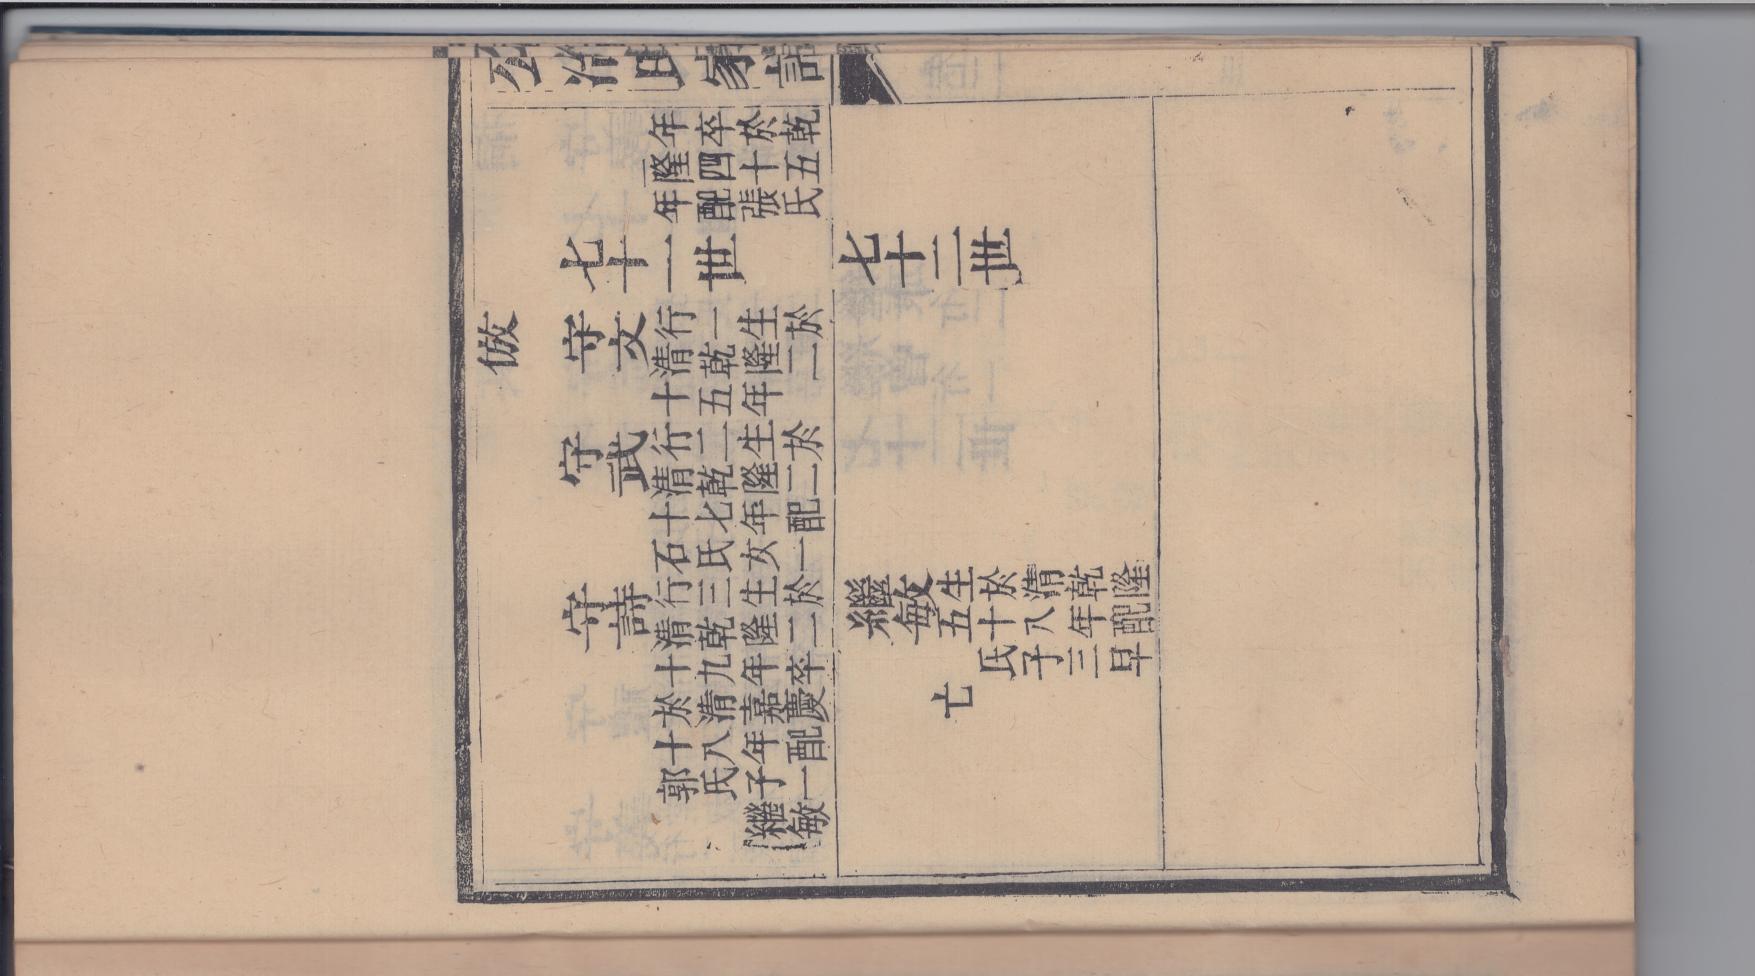 公冶氏家譜
年卒於乾
隆四十五
年配張氏
七十一世
七十二世
倣
守文
行一生於
清乾隆二
十五年
守武
行二生於
清乾隆二
十七年配
石氏女一
守詩
行三生於
清乾隆二
十九年卒
於清嘉慶
十八年配
郭氏子一
繼敏
繼敏
生於清乾隆
五十八年配
氏子三早
亡